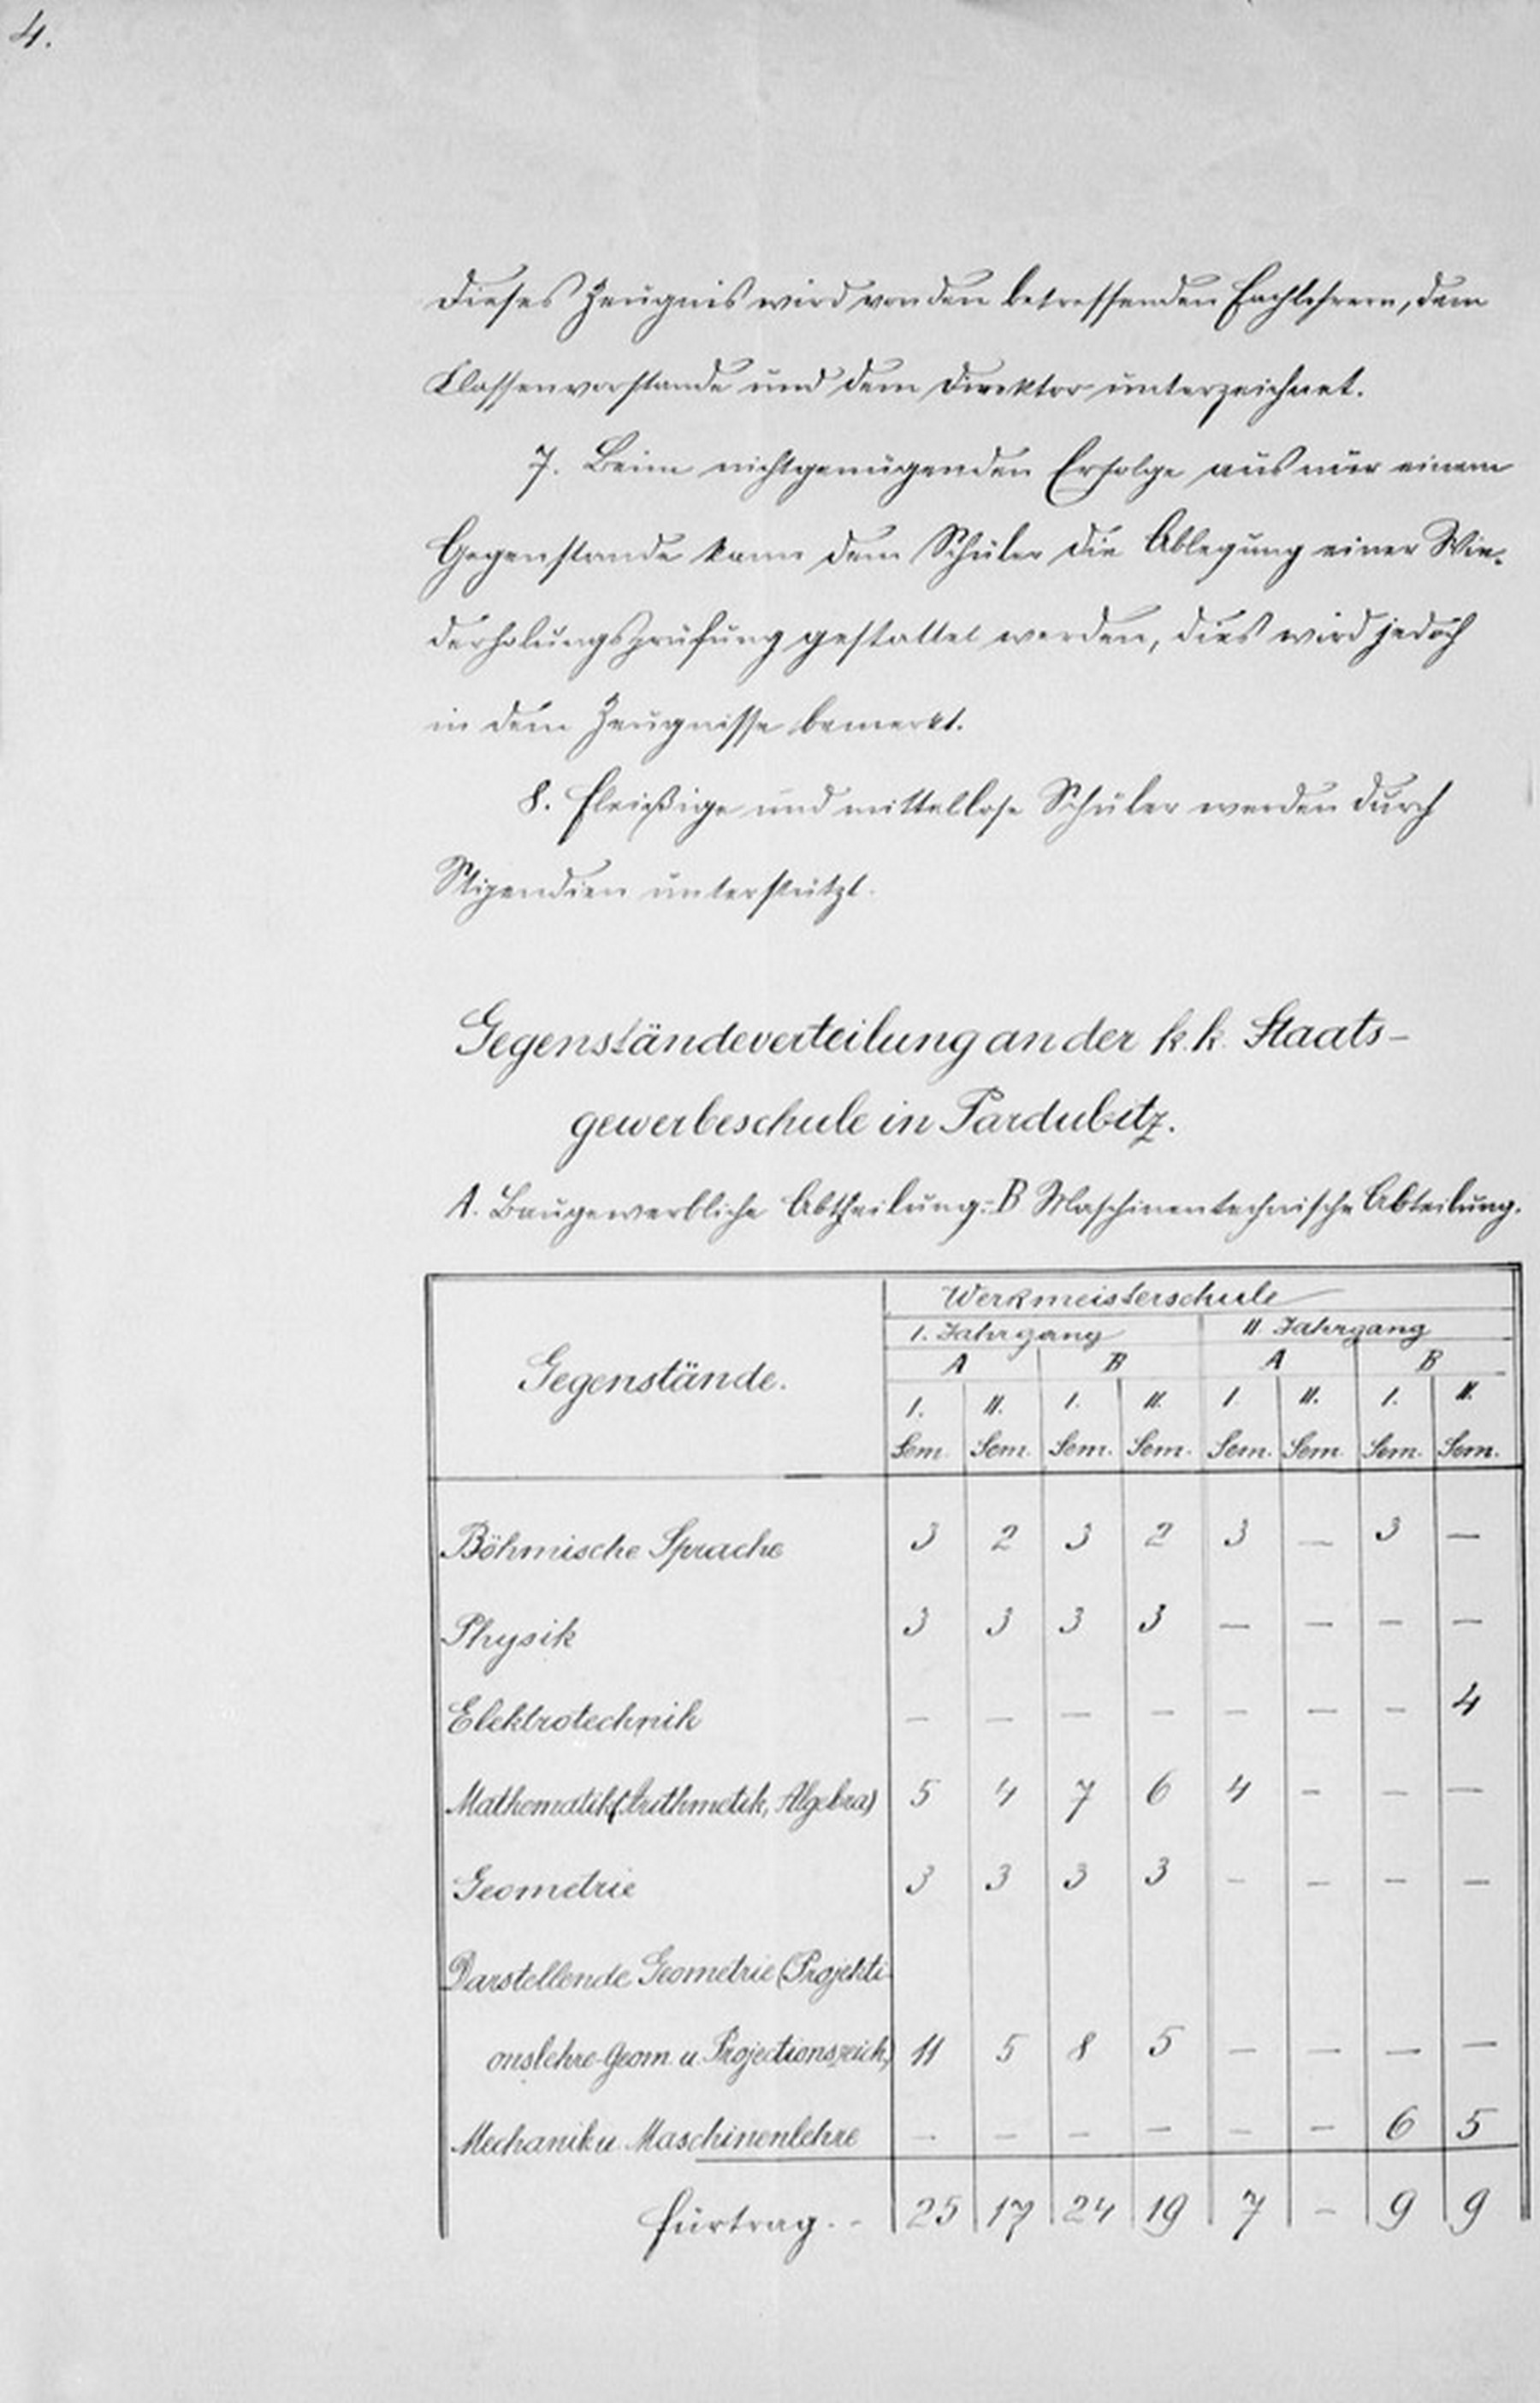 4.
Dieses Zeugnis wird von den betreffenden Fachlehrern, dem
Klassenvorstande und dem Direktor unterzeichnet.
7. Beim nichtgenügenden Erfolge aus nur einem
Gegenstande kann dem Schüler die Ablegung einer Wie-
derholungsprüfung gestattet werden, dies wird jedoch
in dem Zeugnisse bemerkt.
8. Fleißige und mittellose Schüler werden durch
Stipendien unterstützt.
Gegenständeverteilung an der k. k. Staats-
gewerbeschule in Pardubitz.
A. Baugewerbliche Abtheilung. B Maschinentechnische Abteilung.
Gegenstände.
Werkmeisterschule
I. Jahrgang II. Jahrgang
A B A B
I. II. I. II. I. II. I. II.
Sem. Sem. Sem. Sem. Sem. Sem. Sem. Sem.
Böhmische Sprache 3 2 3 2 3 — 3 —
Physik 3 3 3 3 — — — —
Elektrotechnik — — — — — — — 4
Mathematik (Arithmetik, Algebra) 5 4 7 6 4 - — —
Geometrie 3 3 3 3 — — — —
Darstellende Geometrie (Projekti
onslehre-Geom. u. Projectionszeich.) 11 5 8 5 — — — —
Mechanik u. Maschinenlehre — — — — — — 6 5
Fürtrag. - 25 17 24 19 7 - 9 9